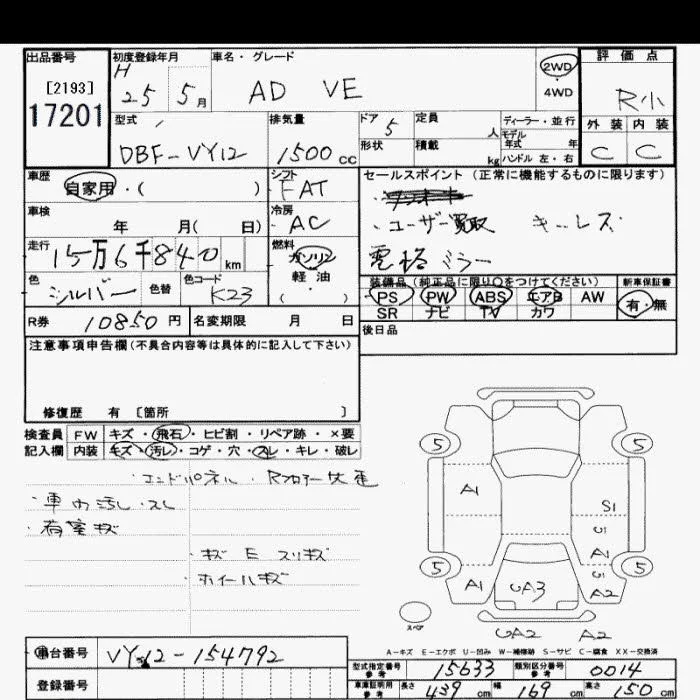 出品番号
[2193]
17201
初度登録年月
H
25 5月
車名・グレード
AD VE
2WD
・
4WD
評価点
R小
外装 内装
C C
型式
DBF-VY12
排気量
1500cc
ドア 5
形状
定員 人
積載 kg
ディーラー・並行
モデル
年式 年
ハンドル 左・右
車歴
自家用・( )
シフト
FAT
車検
年 月( 日)
冷房
AC
走行
15万6千840km
燃料
ガソリン
軽油
・
( )
色
シルバー
色替
色コード
K23
R券 10850円
名変期限 月 日
セールスポイント (正常に機能するものに限ります)
・ユーザー買取 キーレス
電格ミラー
装備品(純正品に限り○をつけてください)
PS PW ABS エアB AW
SR ナビ TV カワ
新車保証書
有・無
後日品
注意事項申告欄(不具合内容等は具体的に記入して下さい)
修復歴 有 〔箇所 〕
検査員
記入欄
FW キズ・飛石・ヒビ割・リペア跡・×要
内装 キズ・汚レ・コゲ・穴・スレ・キレ・破レ
・エンドパネル・Rフロアー
・車内汚レ・スレ
・荷室キズ
・キズ E スリキズ
・ホイールキズ
5 5
A1
S1
U
A1
5 5
A1
UA3
U
S
A2
スペア
UA2 A2
A-キズ E-エクボ U-凹み W-補修跡 S-サビ C-腐食 XX-交換済
車台番号 VY12-154792
登録番号
型式指定番号
参考
15633
類別区分番号
参考
0014
車庫証明用
参考
長さ 439 cm 幅 169 cm 高さ 150 cm